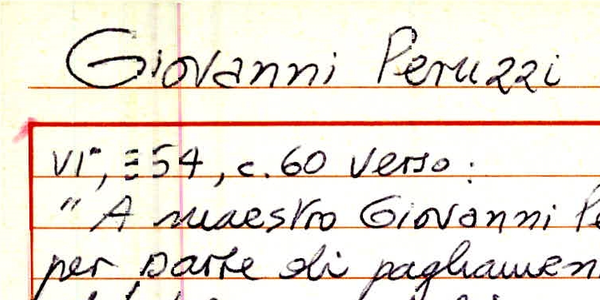 Giovanni Peruzzi
VI°, 354, c. 60 verso:
" A maestro Giovanni Pe
per parte di pagamen